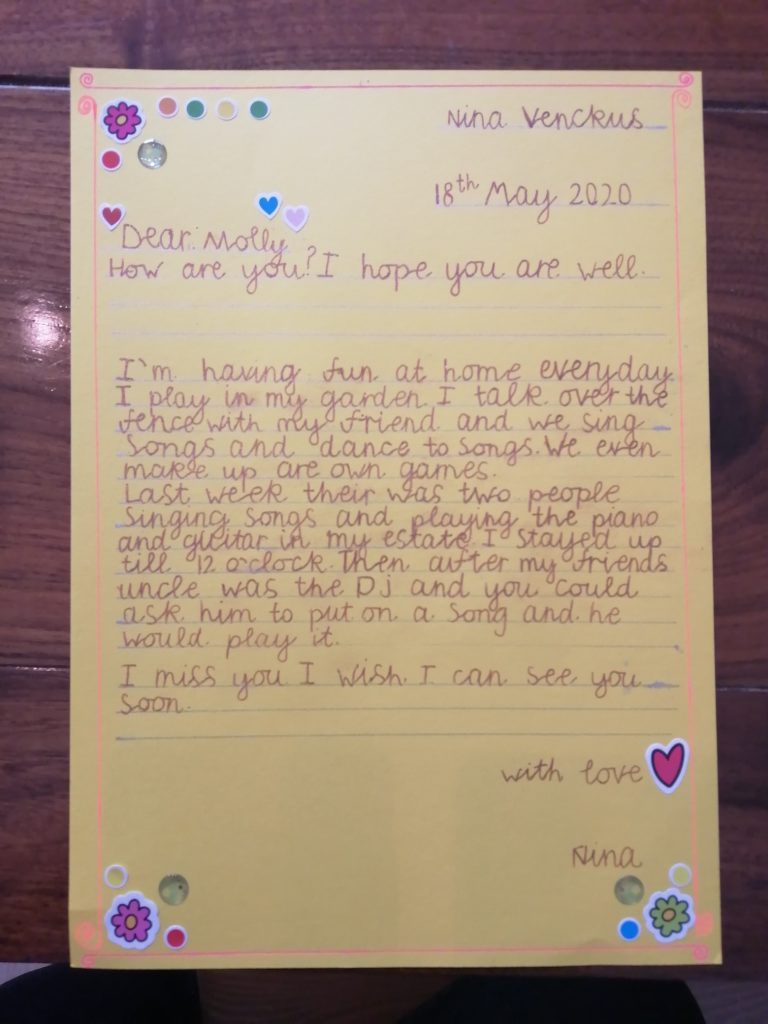 Nina Venckus
18th May 2020
Dear Molly
How are you? I hope you are well.
I'm having fun at home everyday
I play in my garden I talk over the
fence with my friend and we sing
songs and dance to songs. We even
make up are own games.
Last week their was two people
singing songs and playing the piano
and guitar in my estate I stayed up
till 12 o'clock. Then after my friends
uncle was the Dj and you could
ask him to put on a song and he
would play it.
I miss you I wish I can see you
soon.
with love
Nina